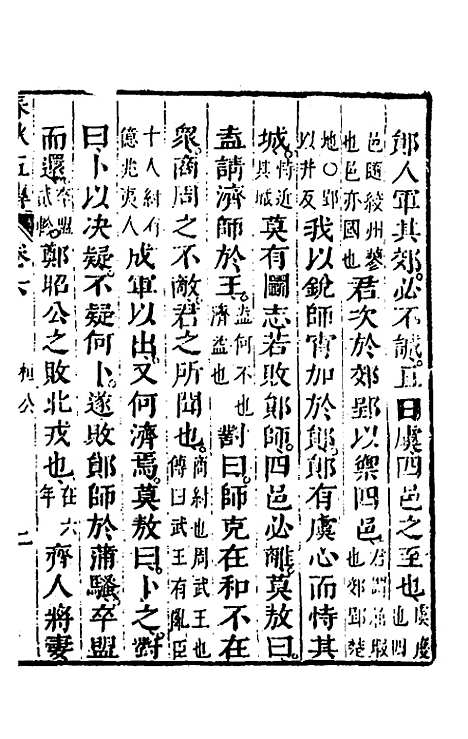 鄖人軍其郊必不誡且日虞四邑之至也虞度也四
邑隨絞州蓼也邑亦國也君次於郊郢以禦四邑君謂屈瑕也郊郢楚
地○郢以井反我以銳師宵加於鄖鄖有虞心而恃其
城恃近其城莫有鬭志若敗鄖師四邑必離莫敖曰
盍請濟師於王盍何不也濟益也對曰師克在和不在
衆商周之不敵君之所聞也商紂也周武王也傳曰武王有亂臣
十人紂有億兆夷人成軍以出又何濟焉莫敖曰卜之對
曰卜以决疑不疑何卜遂敗鄖師於蒲騷卒盟
而還卒盟貳軫鄭昭公之敗北戎也在六年齊人將妻
春秋左傳 卷六 桓公 二